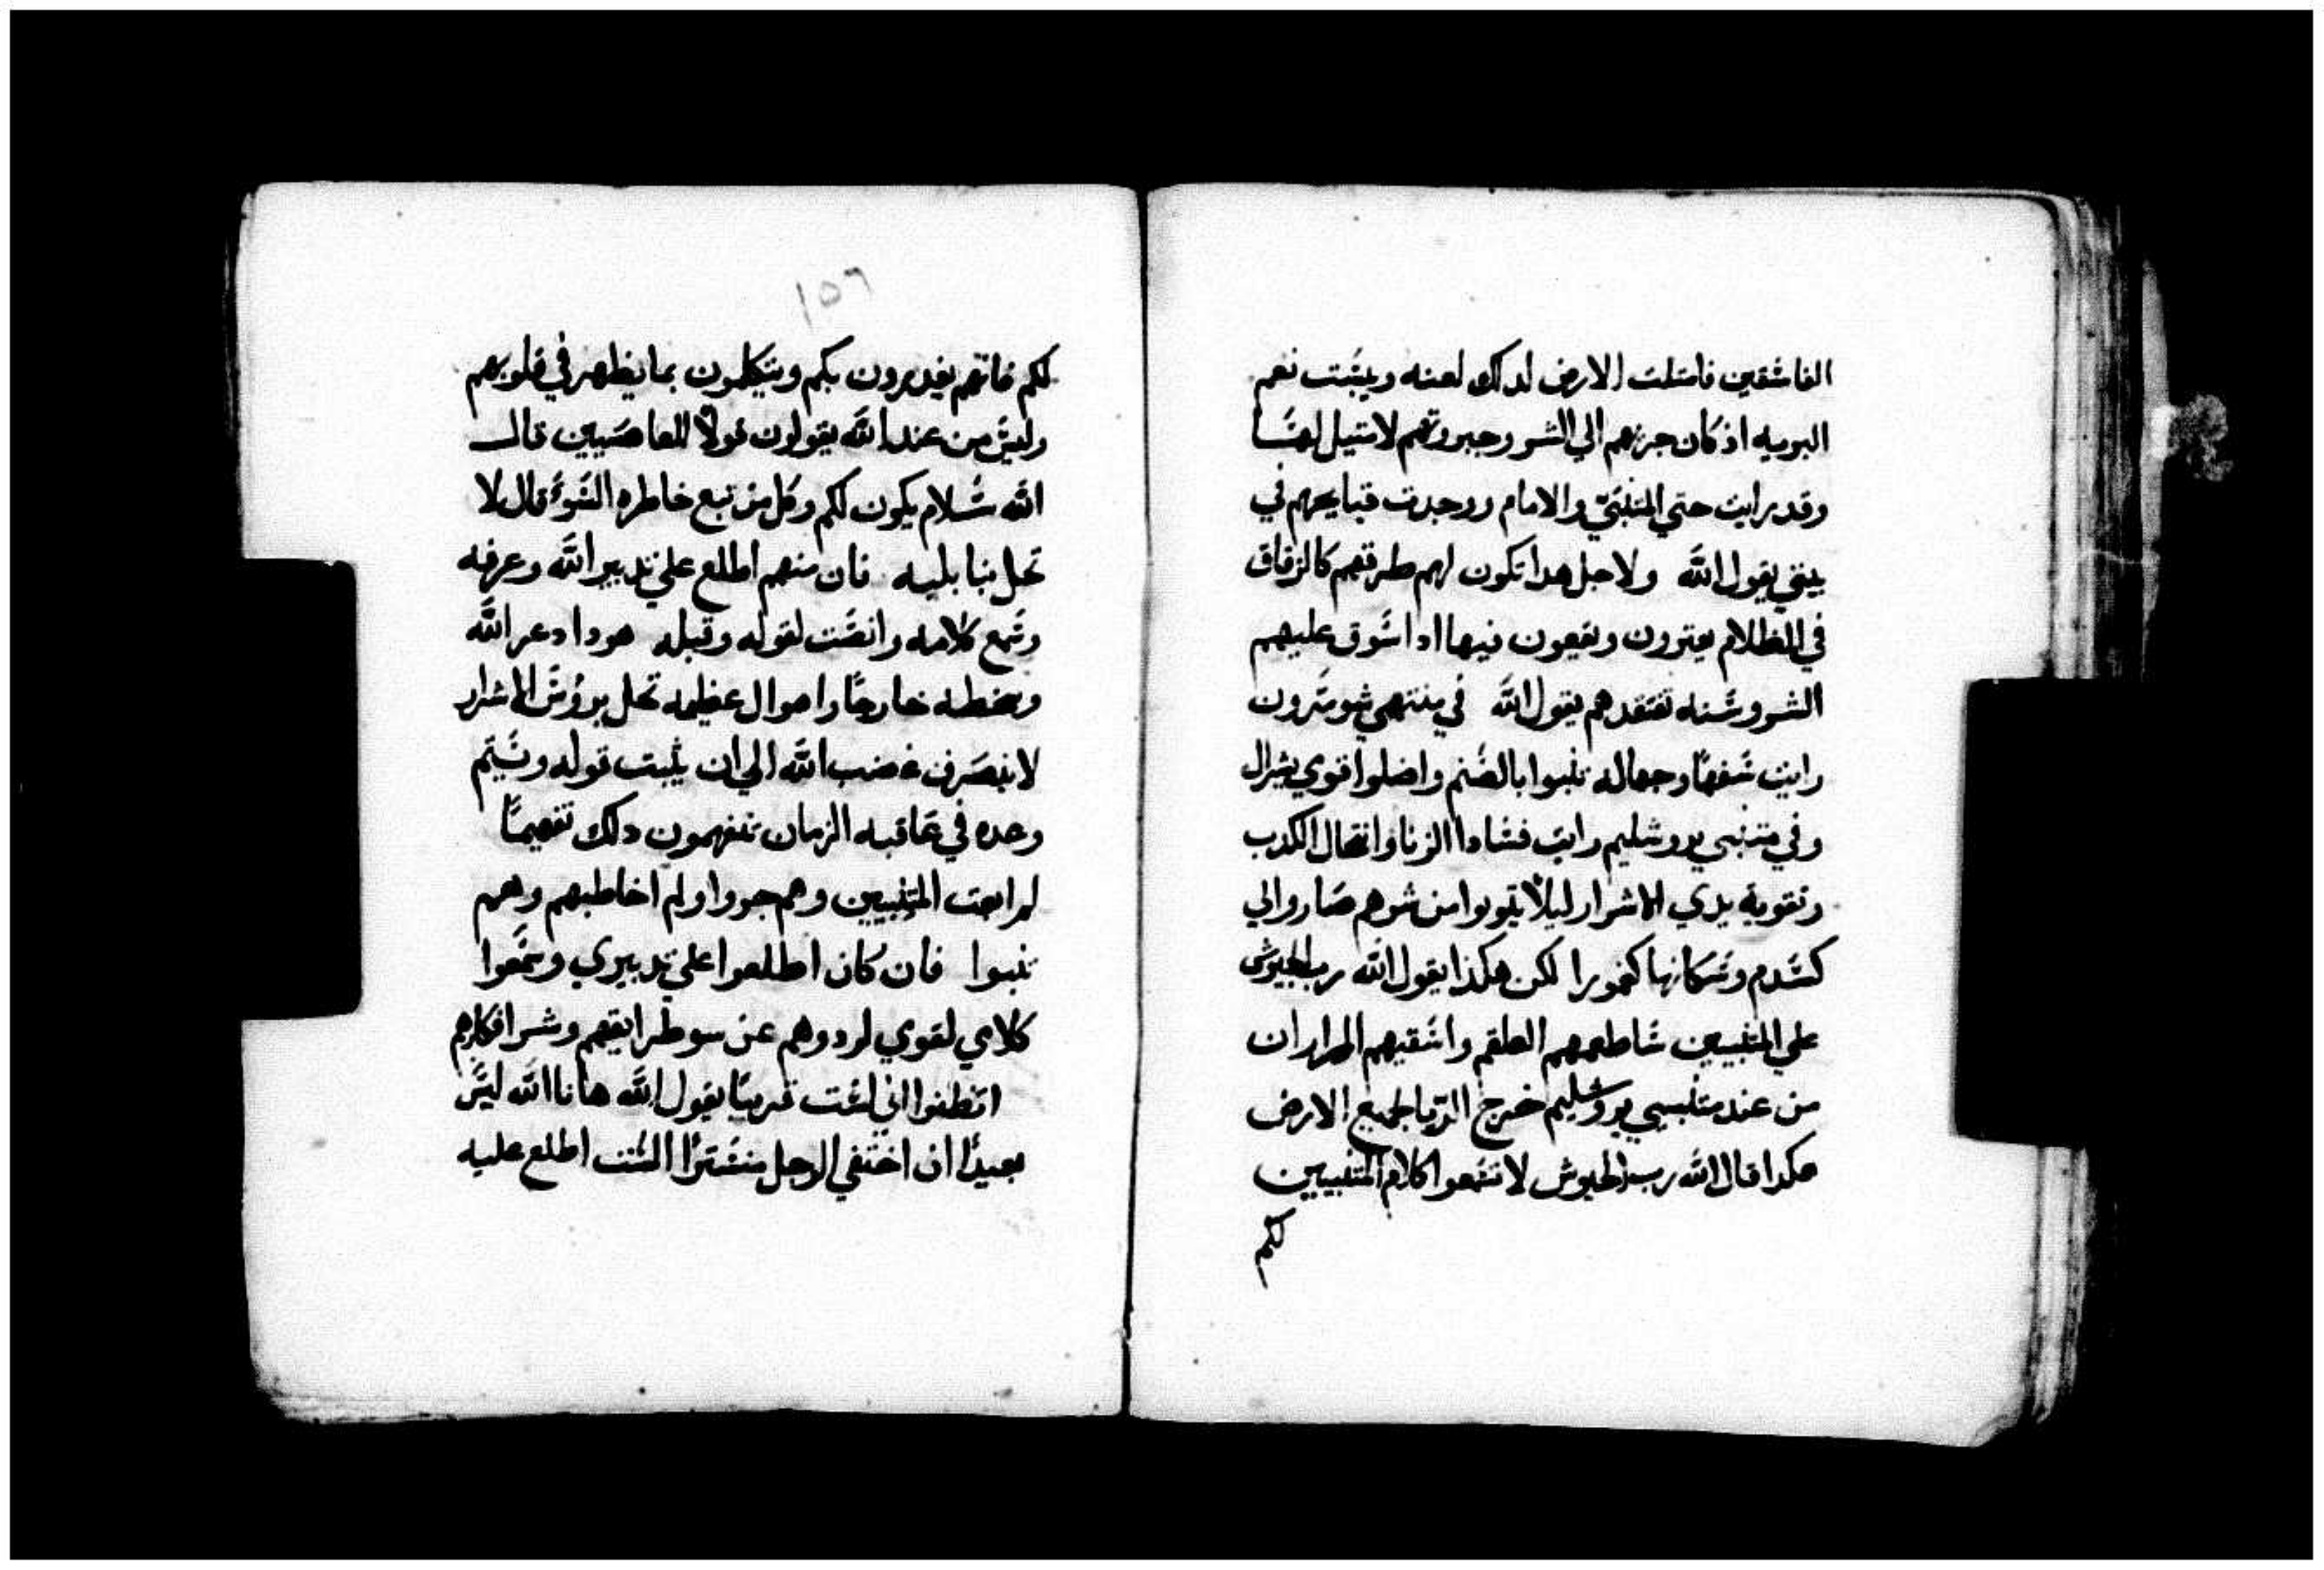 الفاسقين فامتلت الارض لدلك لعنه ويبست نعم
البريه اذ كان جريهم الي الشر وجبروتهم لامتيل لهسا
وقد رايت حتي المتنبّي والامام ووجدت قبايحهم في
بيتي يقول الله ولاجل هدا تكون لهم طرقهم كالزقاق
في الظلام يعترون ويقعون فيها ادا اسوق عليهم
الشر وسنه تفتقدهم يقول الله في متنبي شومرون
رايت سفها وجهاله تنبوا بالصنم واضلوا قومي يسرال
وفي متنبي يروشليم رايت فسادا الزنا وانتحال الكدب
وتقوية يدي الاشرار ليلا يتوبوا من شرهم صاروا لي
كسدم وسكانها كغمورا لكن هكذا يقول الله رب الجيوش
علي المتنبيين ساطعمهم العلقم واسقيهم المرار ان
من عند متنبيي يروشليم خرج الريا لجميع الارض
هكدا قال الله رب الجيوش لا تسمعوا كلام المتنبيين
لكم
١٥٦
لكم فانهم يغدرون بكم ويتكلمون بما يظهر في قلوبهم
وليس من عند الله يقولون قولا للعاصيين قال
الله سلام يكون لكم وكل من تبع خاطره السوء قال لا
تحل بنا بليه فان منهم اطلع علي تدبير الله وعرفه
وسمع كلامه وانصت لقوله وقبله هودا دعر الله
وسخطه خارجا واهوال عظيمه تحل بروس الاشرار
لا ينصرف غضب الله الي ان يثبت قوله وسيتم
وحده في عاقبه الزمان تتفهمون دلك تفهيما
لم ابعت المتنبيين وهم جروا ولم اخاطبهم وهم
تنبوا فان كان اطلعوا علي تدبيري وسمعوا
كلامي لقومي لردوهم عن سو طرايقهم وشر افكارهم
اتظنوا اني لست قريبا يقول الله هانا الله ليس
بعيدا ان اختفي الرجل مستترا الست اطلع عليه